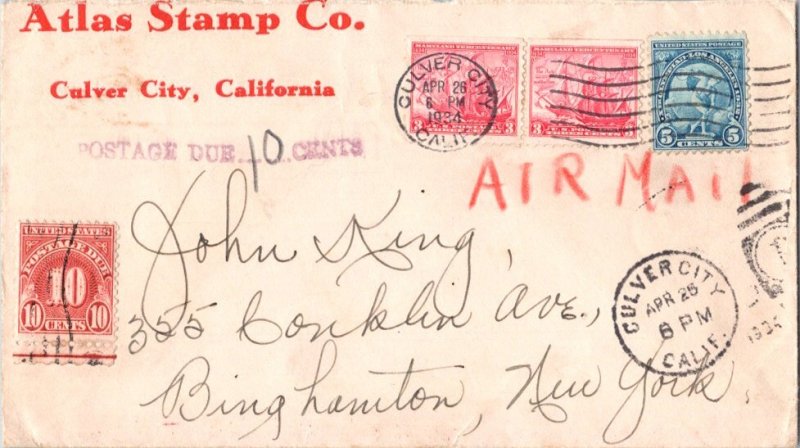 Atlas Stamp Co.
Culver City, California
POSTAGE DUE 10 CENTS
MARYLAND TERCENTENARY
3 3
MARYLAND TERCENTENARY
3 3
UNITED STATES POSTAGE
5 5
CENTS
CULVER CITY
APR 26
6 PM
1934
CALIF.
AIR MAIL
UNITED STATES
POSTAGE DUE
10
10 CENTS 10
John King,
325 Conklin Ave.,
Binghamton, New York.
CULVER CITY
APR 26
6 PM
CALIF.